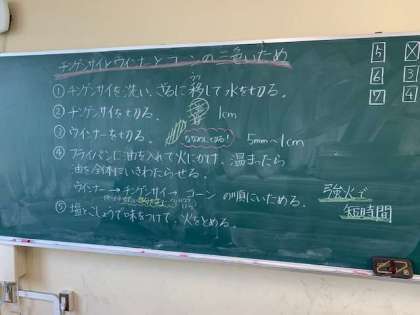 チンゲンサイとウィンナーとコーンの三色いため
① チンゲンサイを洗い、ざるに移して水を切る。
② チンゲンサイを切る。 1cm
③ ウィンナーを切る。 ななめに切る! 5mm〜1cm
④ フライパンに油を入れて火にかけ、温まったら
油を全体にいきわたらせる。
ウィンナー → チンゲンサイ → コーン の順にいためる。
強火で
短時間
⑤ 塩とこしょうで味をつけて、火をとめる。
5
6 3
7 4